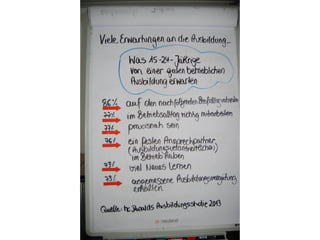 Viele Erwartungen an die Ausbildung...
Was 15-24-Jährige
von einer guten betrieblichen
Ausbildung erwarten
86% auf den nachfolgenden Berufsalltag vorbereiten
77% im Betriebsalltag richtig mitarbeiten
77% praxisnah sein
76% ein festen Ansprechpartner
im Betrieb haben
viel Neues Lernen
73% angemessene Ausbildungsvergütung
erhalten
Quelle: Mc Donalds Ausbildungsstudie 2013